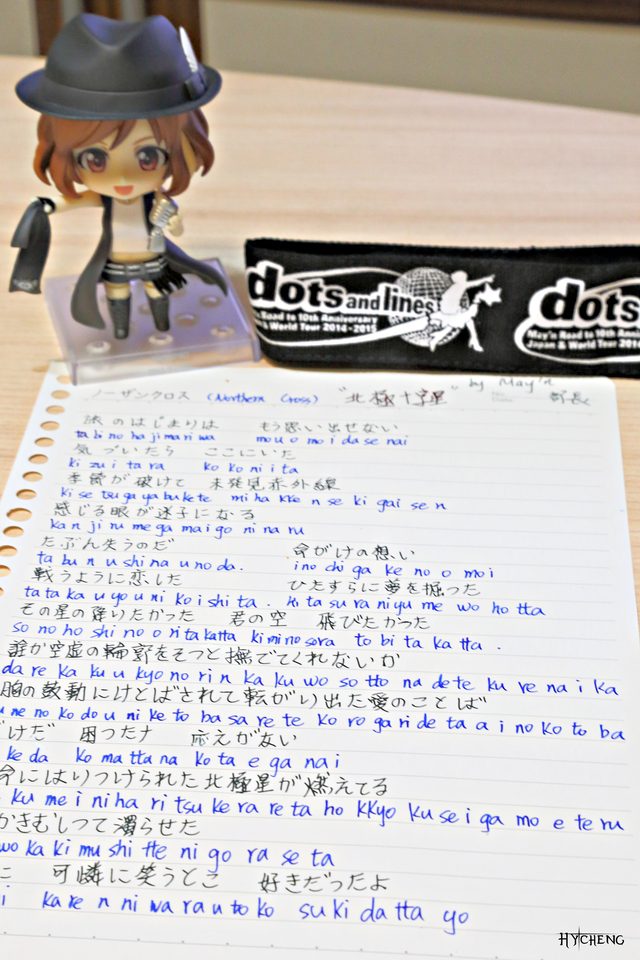 dots and lines
May'n Road to 10th Anniversary
Japan & World Tour 2014-2015
dots
May'n Road to 10th
Japan & World Tour 2014
ノーザンクロス (Northern Cross) "北極十字星" by May'n 部長
旅のはじまりは もう思い出せない
ta bi no ha ji ma ri wa mo u o mo i da se nai
気づいたら ここにいた
ki zu i ta ra ko ko ni i ta
季節が破けて 未発見赤外線
ki se tsu ga ya bu ke te mi ha kke n se ki gai se n
感じる眼が迷子になる
kan ji ru me ga mai go ni na ru
たぶん失うのだ 命がけの想い
ta bu n u shi na u no da. i no chi ga ke no o mo i
戦うように恋した ひたすらに夢を掘った
ta ta ka u yo u ni ko i shi ta. hi ta su ra ni yu me wo ho tta
その星の降りたかった 君の空 飛びたかった
so no ho shi no o ri ta katta kimi no sora to bi ta ka tta.
誰か空虚の輪郭をそっと撫でてくれないか
da re ka ku u kyo no ri n ka ku wo so tto na de te ku re na i ka
胸の鼓動にけとばされて転がり出た愛のことば
une no ko do u ni ke to ba sa re te ko ro ga ri de ta a i no ko to ba
けだ 困ったナ 応えがない
ke da ko ma tta na ko ta e ga nai
命にはりつけられた北極星が燃えてる
ku mei ni ha ri tsu ke ra re ta ho kkyo ku se i ga mo e te ru
かきむしって濁らせた
wo ka ki mu shi tte ni go ra se ta
に 可憐に笑うとこ 好きだったよ
i ka re n ni wa ra u to ko su ki da tta yo
HYCHENG